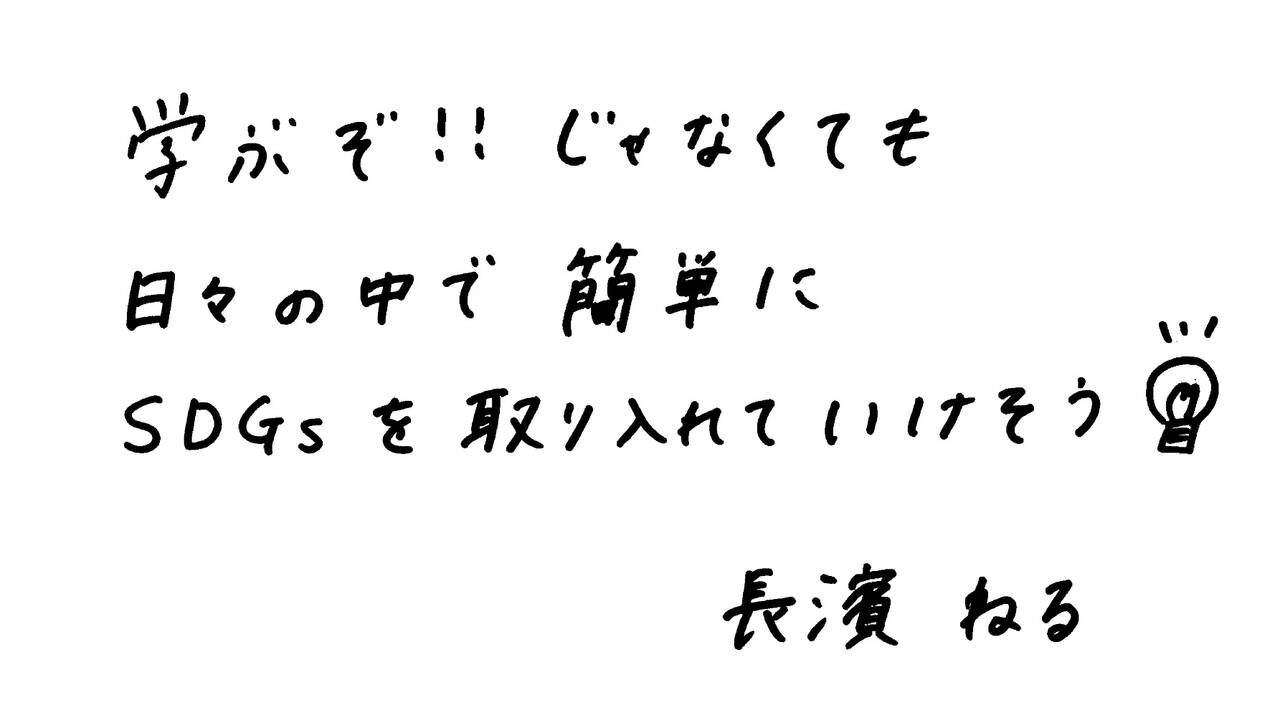 学ぶぞ!! じゃなくても
日々の中で 簡単に
SDGsを取り入れていけそう
長濱 ねる